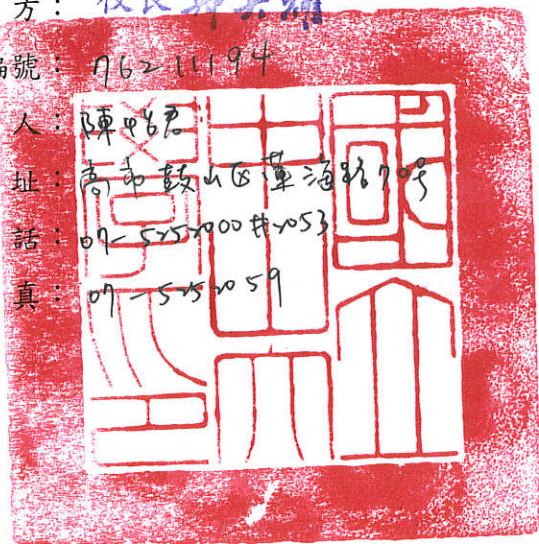 方：校長鄭英耀
編號：76211194
人：陳怡君
址：高市鼓山区蓮海路70号
話：07-5252000#2053
真：07-5252059
國立中山大學印